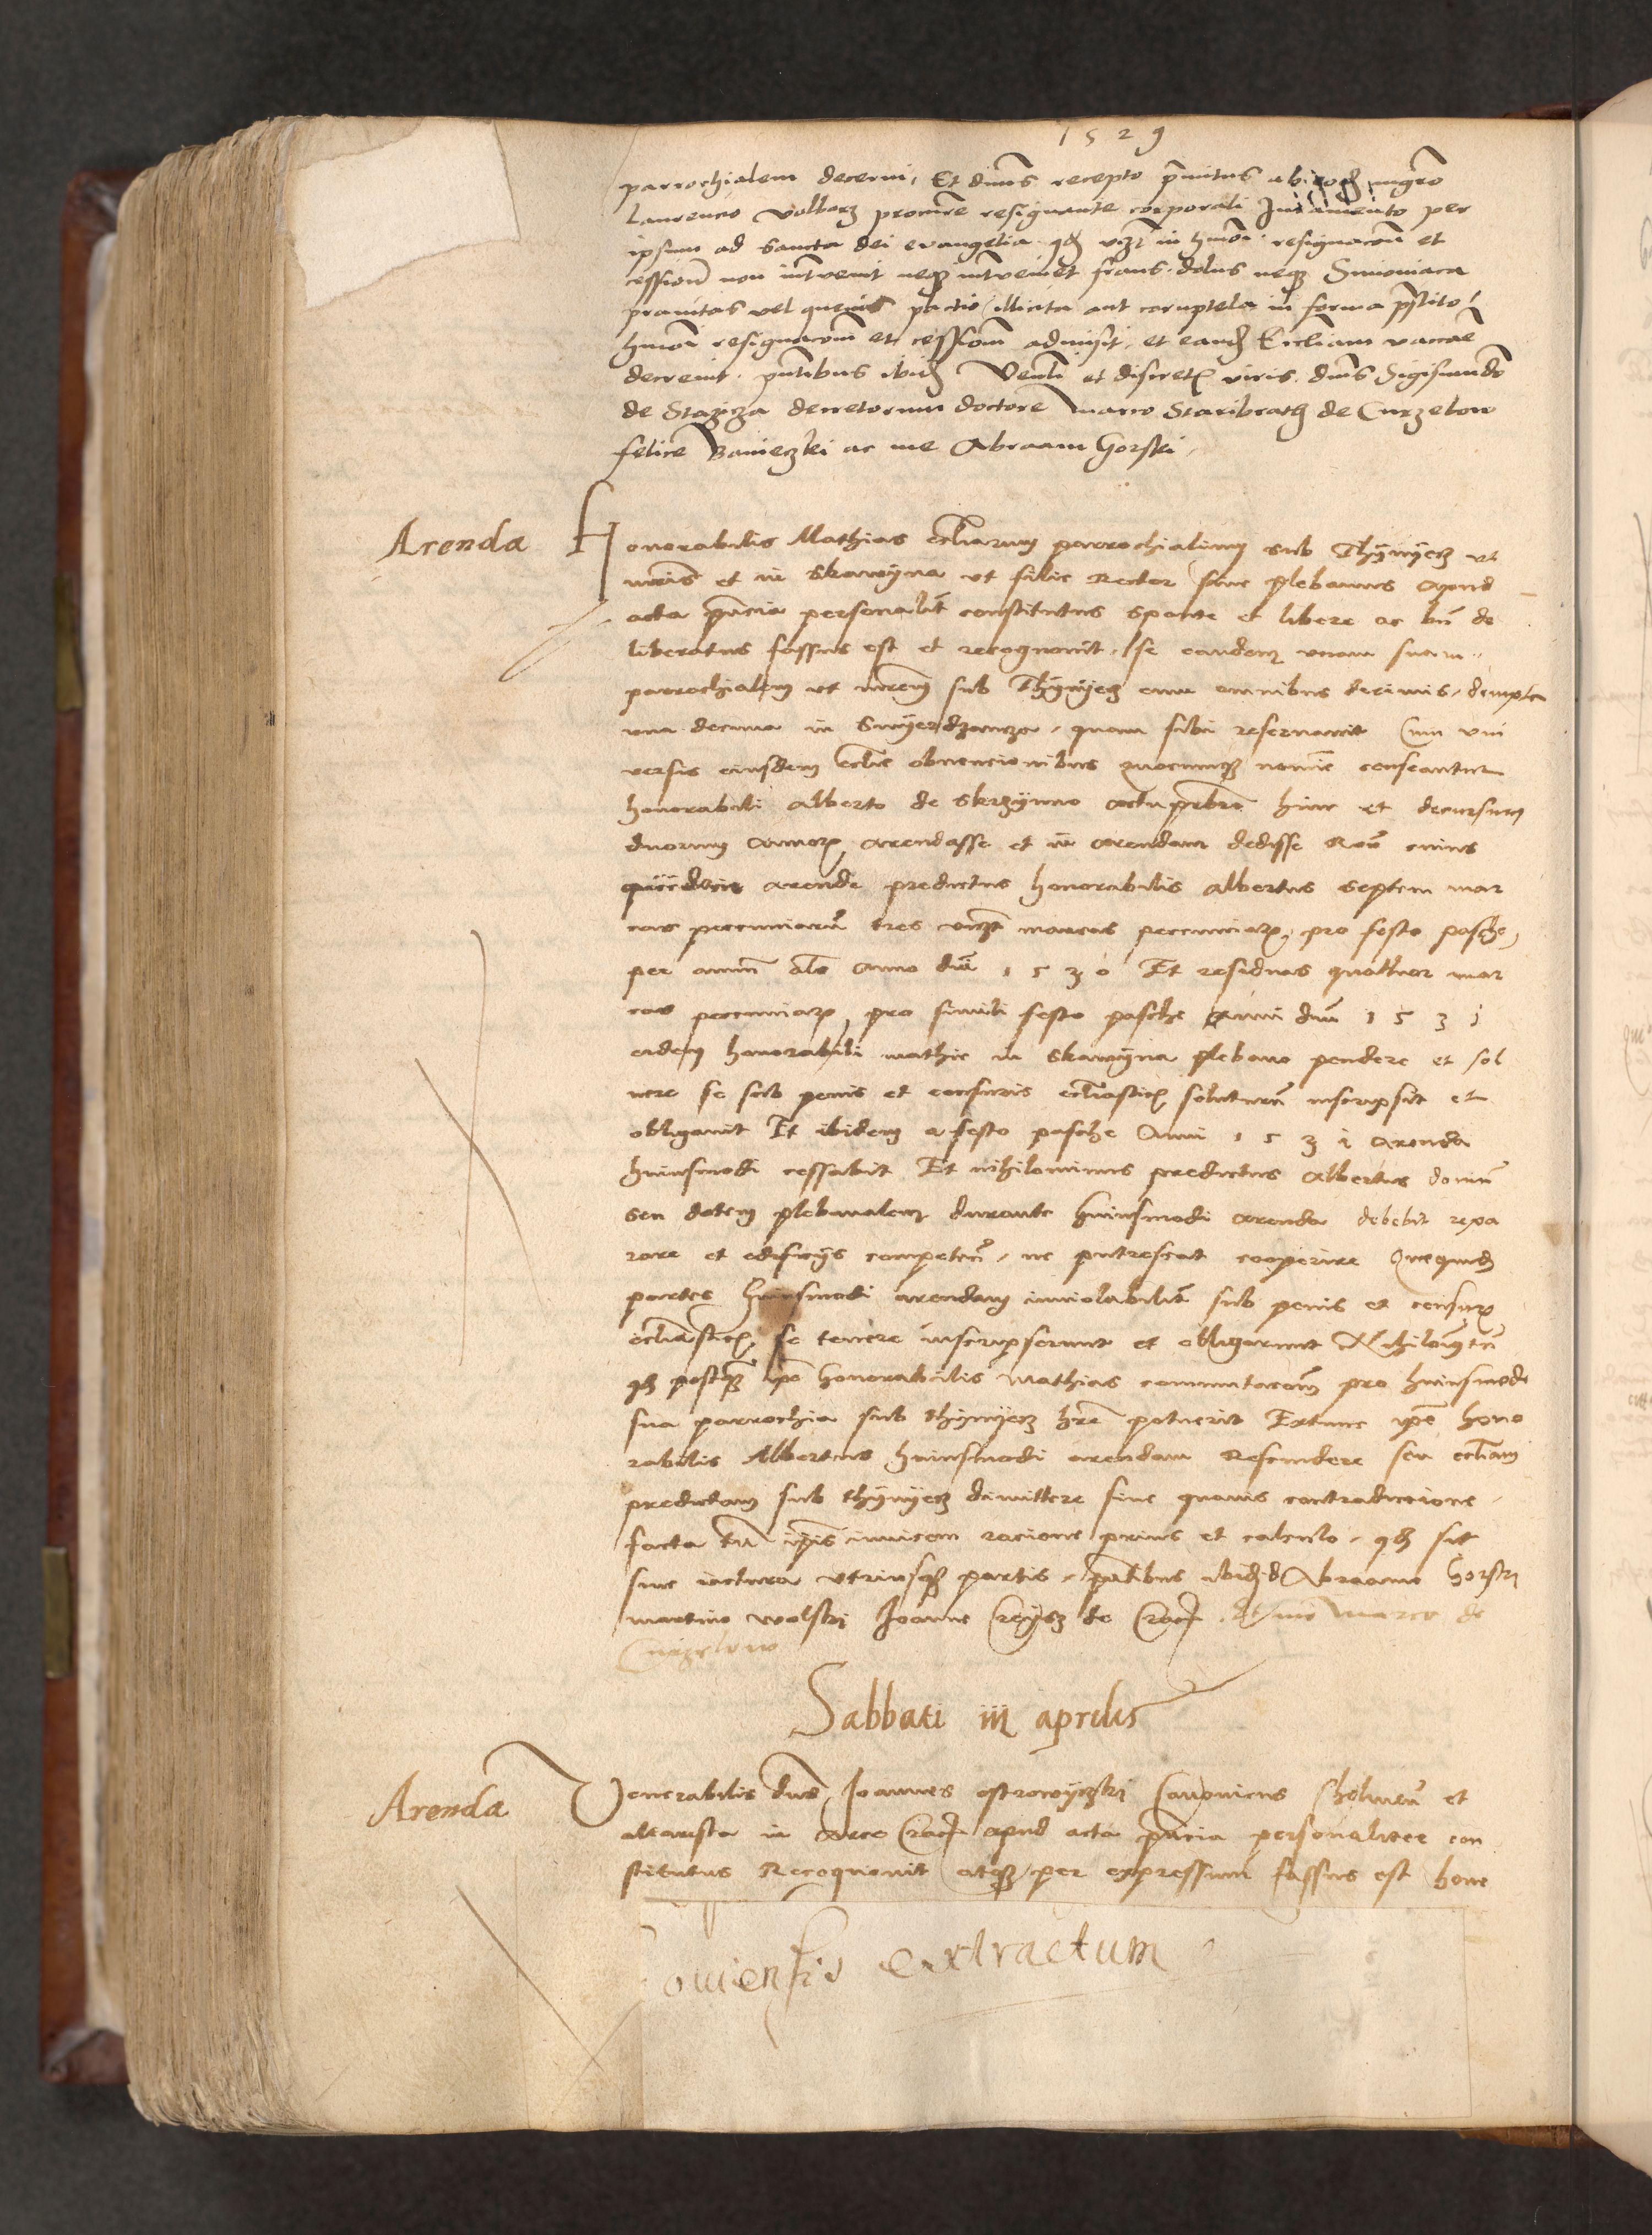 1529
parrochialem decerni, Et dnus recepto prmitus ab eodem mgro
Laurencio Volborz procure resignante corporali Iuramento per
ipsum ad sancta dei evangelia qd vizt in hmoi resignacom et
cession non intvenit neqz intveniet fraus dolus neqz Simoniaca
pravitas vel quevis pactio illicita aut coruptela in forma prstito
hmoi resignacom et cessiom admisit, et eand Eccliam vaccae
decrevit. pntibus ibid Venli et discret viris dnis Sigismundo
de Stazicza decretorum doctore Marco Staribrath de Curzelow
felice Banieczki ac me Abraam Gorski
Arenda
Honorabilis Mathias eccliarum parrochialium sub Thynyecz vt
mris et in Skawyna vt filie Rector sive plebanus Apud
acta pncia personalit constitutus sponte et libere ac bn de
liberatus fassus est et recognovit, se eandem vnam suam
parrochialem vt mrem sub Thynyecz cum omnibus decimis, dempta
vna decima in Smyerdzancza, quam sibi reservavit Cum vni
versis eiusdem ecclie obvencionibus quocunqz nomine censeantur
honorabili Alberto de Skrzynno prbro hinc et decursum
duorum annor arendasse et in arendam dedisse Rone cuius
quidem arende predictus honorabilis Albertus septem mar
cas pecuniarum tres vizt marcas pecuniar, pro festo pasche,
per annum als anno dni 1530 Et residuas quattuor mar
cas pecuniar, pro simili festo pasche Anni dni 1531
eidem honorabili mathie in Skawyna plebano pendere et sol
uere se sub penis et censuris ecclasticis soluturum inscripsit et
obligavit Et ibidem a festo pasche Anni 1531 arenda
huiusmodi cessabit Et nihilominus predictus Albertus domum
seu dotem plebanalem durante huiusmodi arenda debebit repa
rare et edificys competen, ne putrescat cooperire Quequid
partes huiusmodi arendam inviolabilit sub penis et censur
ecclastic, se tenere inscripserunt et obligarunt Nihilomtn
qd postqz ipse honorabilis Mathias commutacom pro huiusmodi
sua parrochia sub thynyecz hre potuerit Extunc ipe hono
rabilis Albertus huiusmodi arendam Rescindere seu eccliam
predictam sub thynyecz dimittere sine quavis contradiccione,
facta tn ipis invicem racione prius et calculo, qd sit
sine iactura vtriusqz partis, pntibus ibid d Abraamo Gorski
martino wolski Joanne Creysz de Crac Et me Marco de
Curzelow
Sabbati iii aprilis
Arenda
Venerabilis dns Joannes ostrowyczki Canonicus Chelmen et
altarista in Arce Crac apud acta pncia personaliter con
stitutus Recognovit atqz per expressum fassus est hone
oviensis extractum